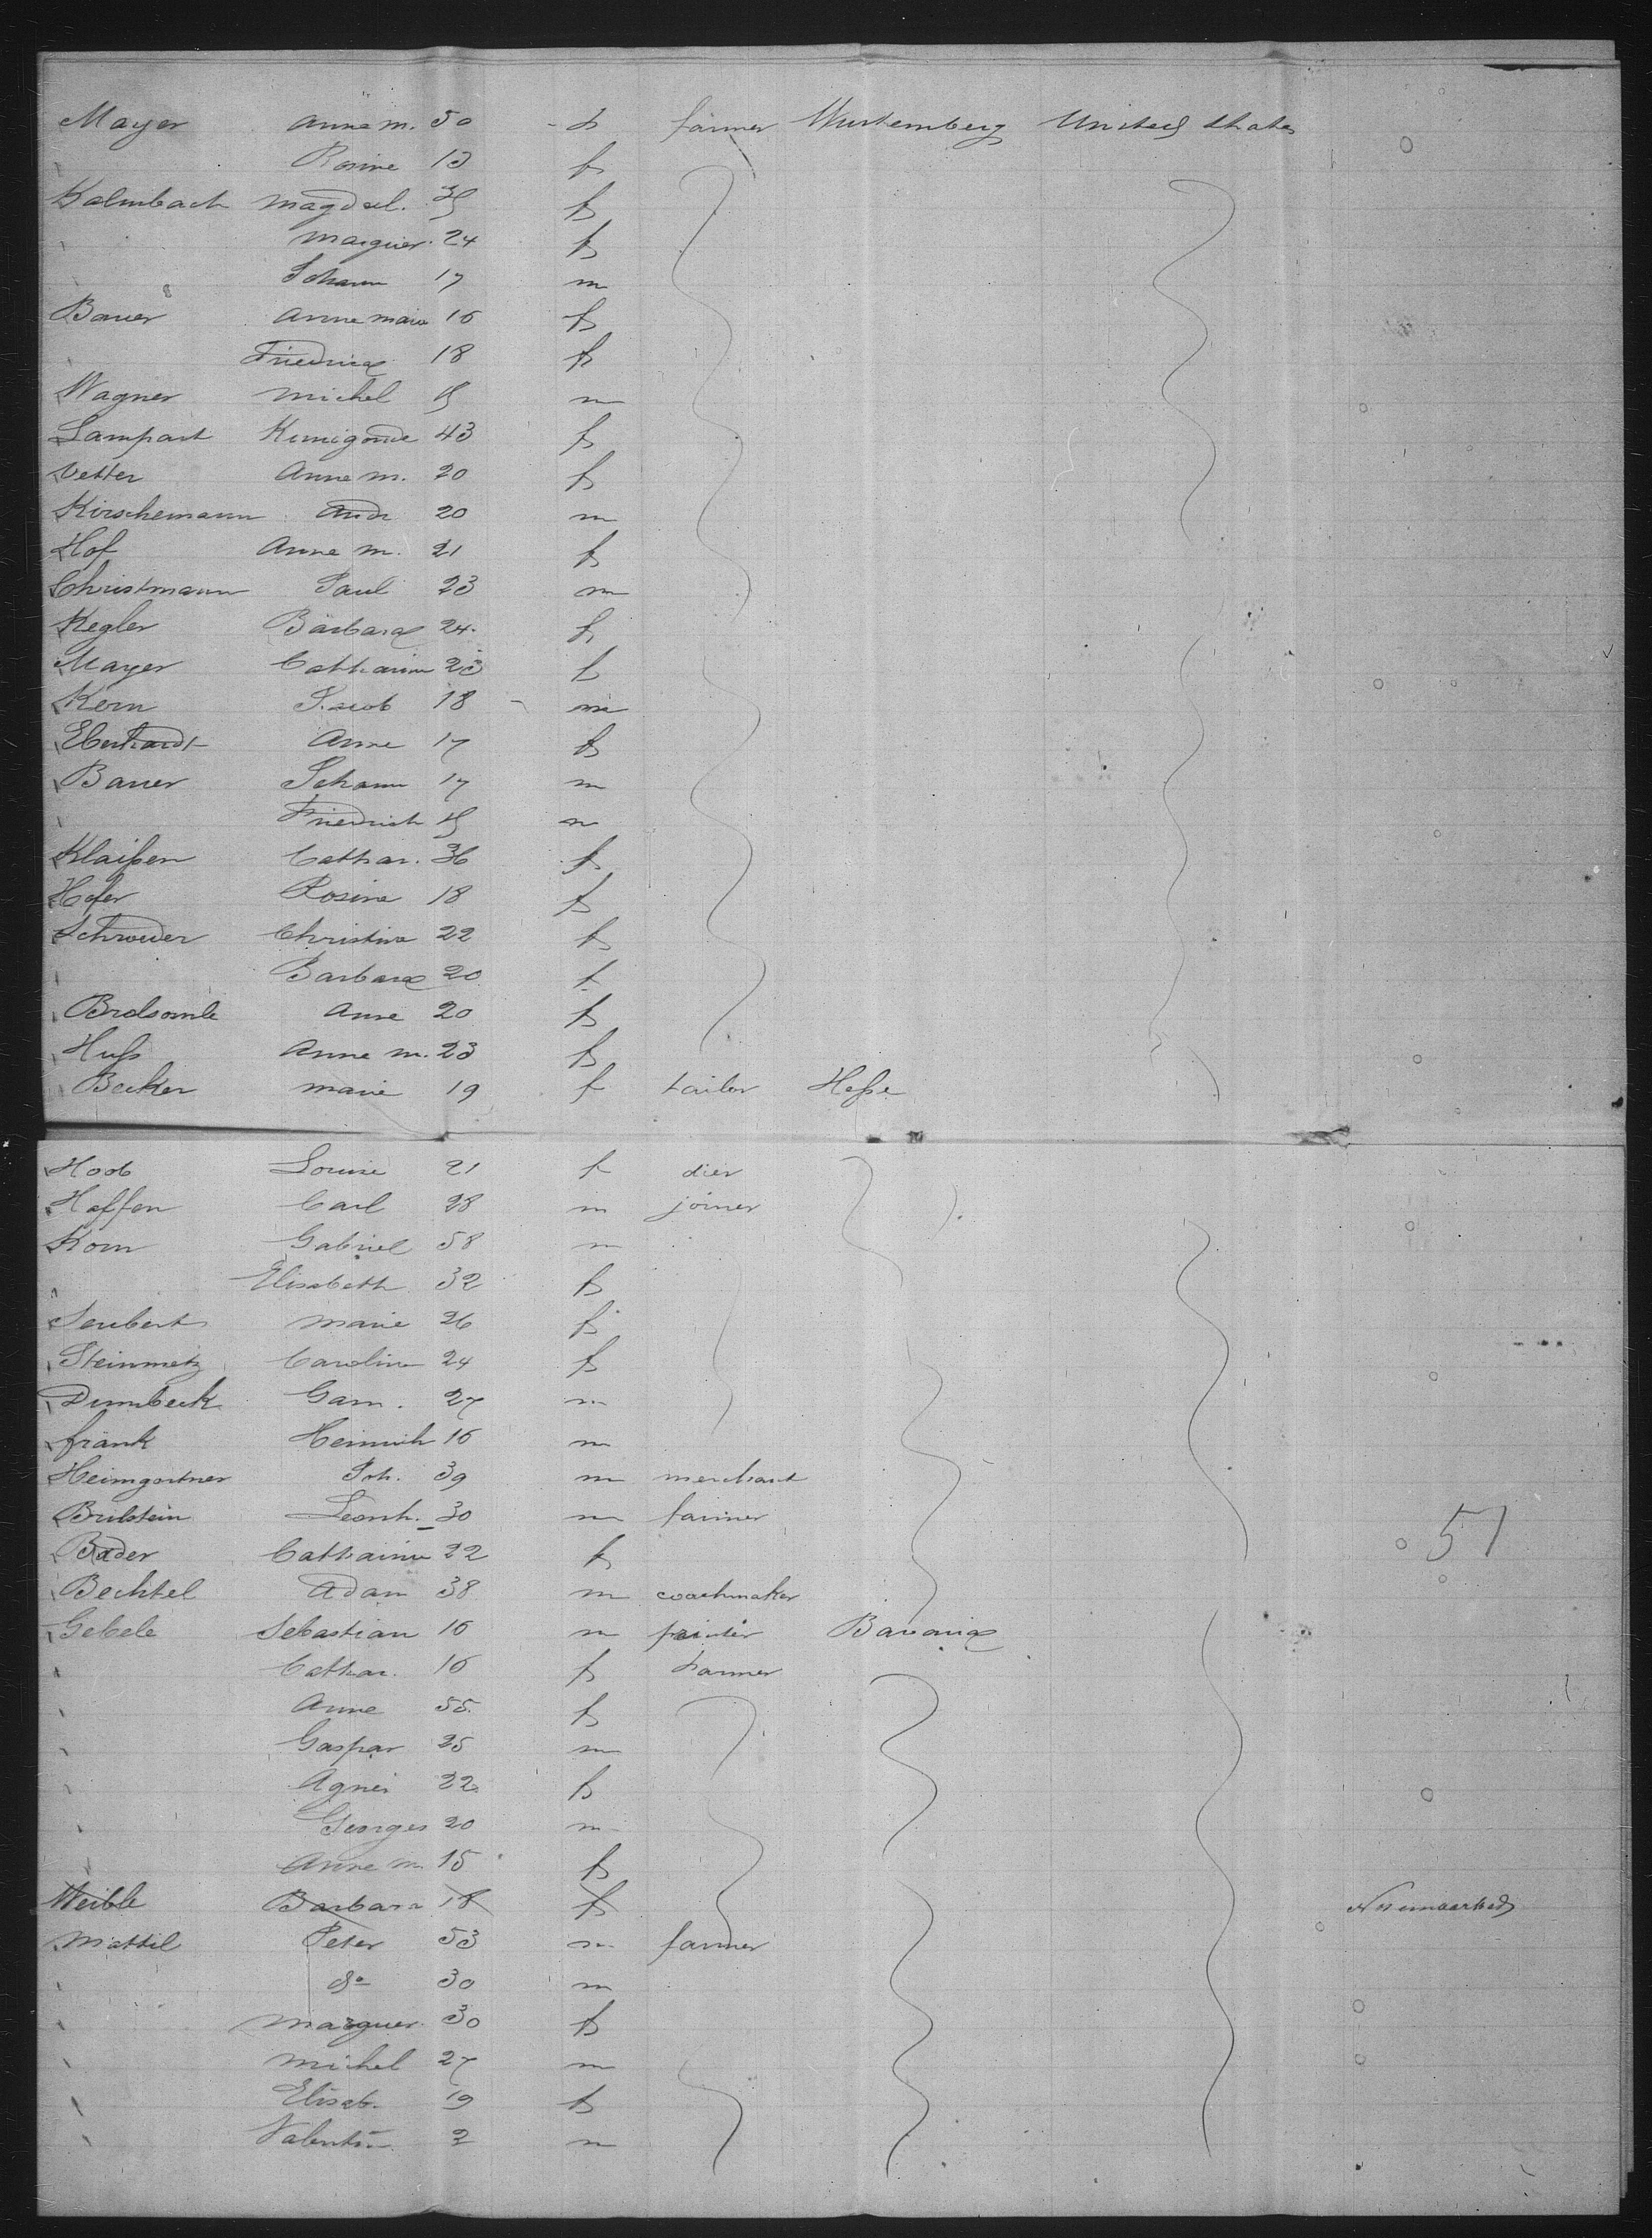 Mayer Anna m. 50 f farmer Wurtemberg United States
" Rosine 13 f
Kalmbach Magdal. f
" Marguer. 24 f
Johann 17 m
Bauer Anne marie 16 f
" 18 f
Wagner Michel 15 m
Lampart Kunigonde 43 f
Vetter Anne m. 20 f
Kirschemann Andr 20 m
Hof Anne m. 21 f
Christmann Paul 23 m
Kegler Barbara 24 f
Mayer Catharine 23 f
Kern Jacob 18 m
Eberhardt Anne 17 f
Bauer Johann 17 m
" Friedrich 15 m
Klaißen Cathar. 36 f
Hofer Rosine 18 f
Schroeder Christine 22 f
" Barbara 20 f
Anne 20 f
Huß Anne m. 23 f
Becker Marie 19 f tailor Heße
Hoob Louise 21 f dier
Haffen Carl 28 m joiner
Korn Gabriel 58 m
" Elisabeth 32 f
Seubert Marie 26 f
Steinmetz Caroline 24 f
Dumbeck 27 m
Frank Heinrich 16 m
Heimgartner Joh. 39 m merchant
Brilstein Leonh. 30 m farmer
Bader Catharine 22 f
Bechtel Adam 38 m coachmaker
Gebele Sebastian 16 m painter Bavaria
" Cathar. 16 f farmer
" Anne 55 f
" Gaspar 25 m
" Agnes 22 f
" Georges 20 m
" Anne m 15 f
Weible Barbara 18 f
Mattil Peter 53 m farmer
" do 30 m
" Marguer. 30 f
" Michel 27 m
" Elisab. 19 f
" Valentin 2 m
51